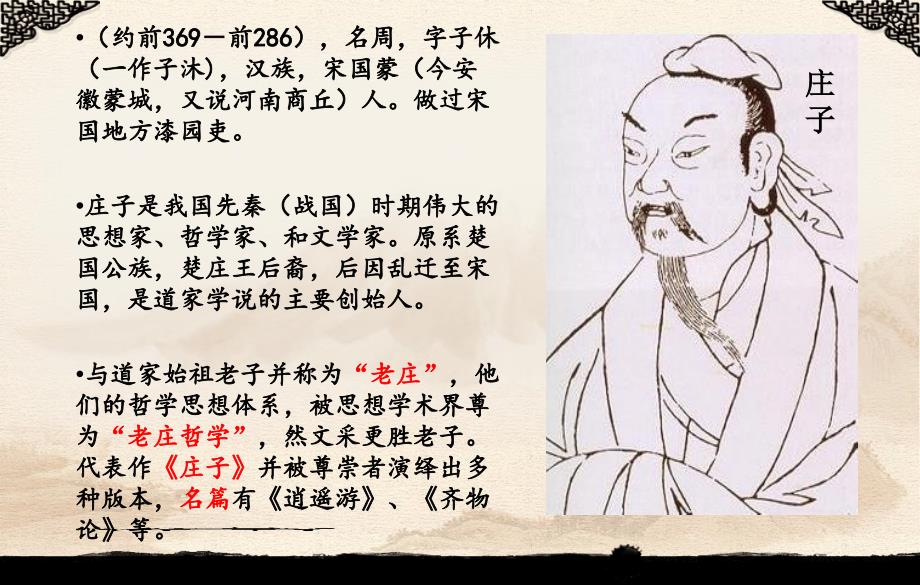 •（约前369－前286），名周，字子休
（一作子沐），汉族，宋国蒙（今安
徽蒙城，又说河南商丘）人。做过宋
国地方漆园吏。
•庄子是我国先秦（战国）时期伟大的
思想家、哲学家、和文学家。原系楚
国公族，楚庄王后裔，后因乱迁至宋
国，是道家学说的主要创始人。
•与道家始祖老子并称为“老庄”，他
们的哲学思想体系，被思想学术界尊
为“老庄哲学”，然文采更胜老子。
代表作《庄子》并被尊崇者演绎出多
种版本，名篇有《逍遥游》、《齐物
论》等。
庄子